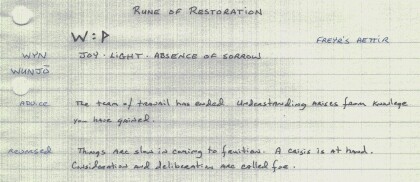 RUNE OF RESTORATION
W : P FREYR'S AETTIR
WYN JOY · LIGHT · ABSENCE OF SORROW
WUNJŌ
ADVICE The team of travail has ended. Understanding arises from knowlege
you have gained.
REVERSED Things are slow in coming to fruition. A crisis is at hand.
Consideration and deliberation are called for.